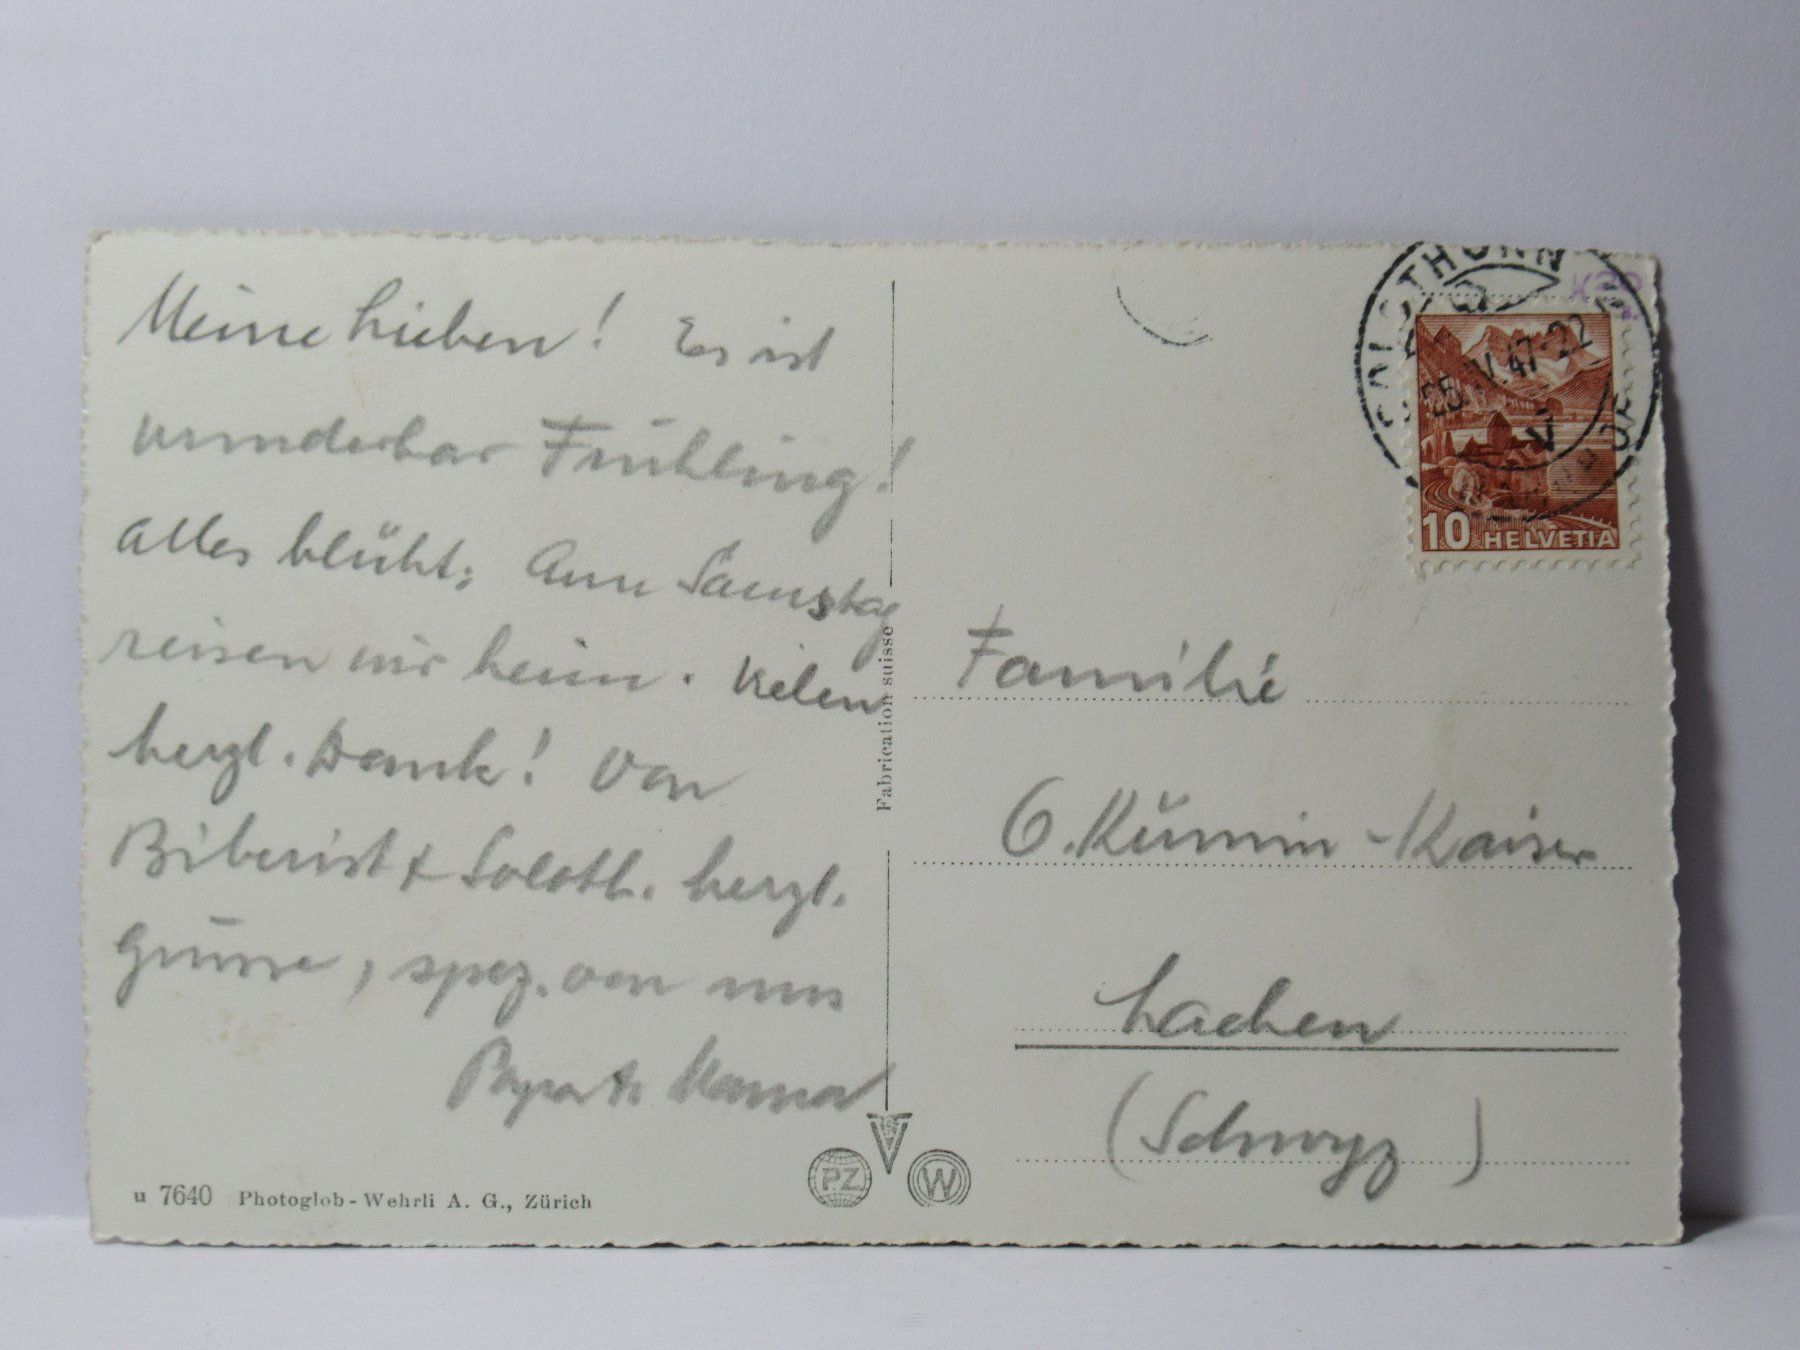 Meine Lieben! Es ist
wunderbar Frühling!
Alles blüht; Am Samstag
reisen wir heim. Vielen
herzl. Dank! Von
Biberist & Soloth. herzl.
Grüsse, spez. von uns
Papa & Mama
u 7640 Photoglob-Wehrli A. G., Zürich
Fabrication suisse
PZ
W
SOLOTHURN
25.IV.47-22
10 HELVETIA
Familie
O. Kümin-Kaiser
Lachen
(Schwyz)